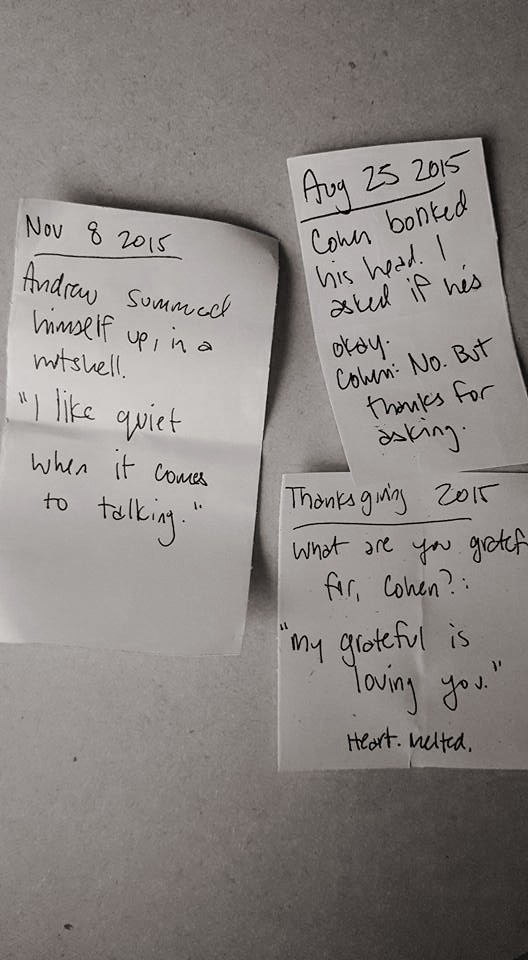 Nov 8 2015
Andrew summed
himself up, in a
nutshell.
"I like quiet
when it comes
to talking."
Aug 25 2015
Cohen bonked
his head. I
asked if he's
okay.
Cohen: No. But
thanks for
asking.
Thanksgiving 2015
What are you gratef
for, Cohen?:
"my grateful is
loving you."
Heart. Melted.